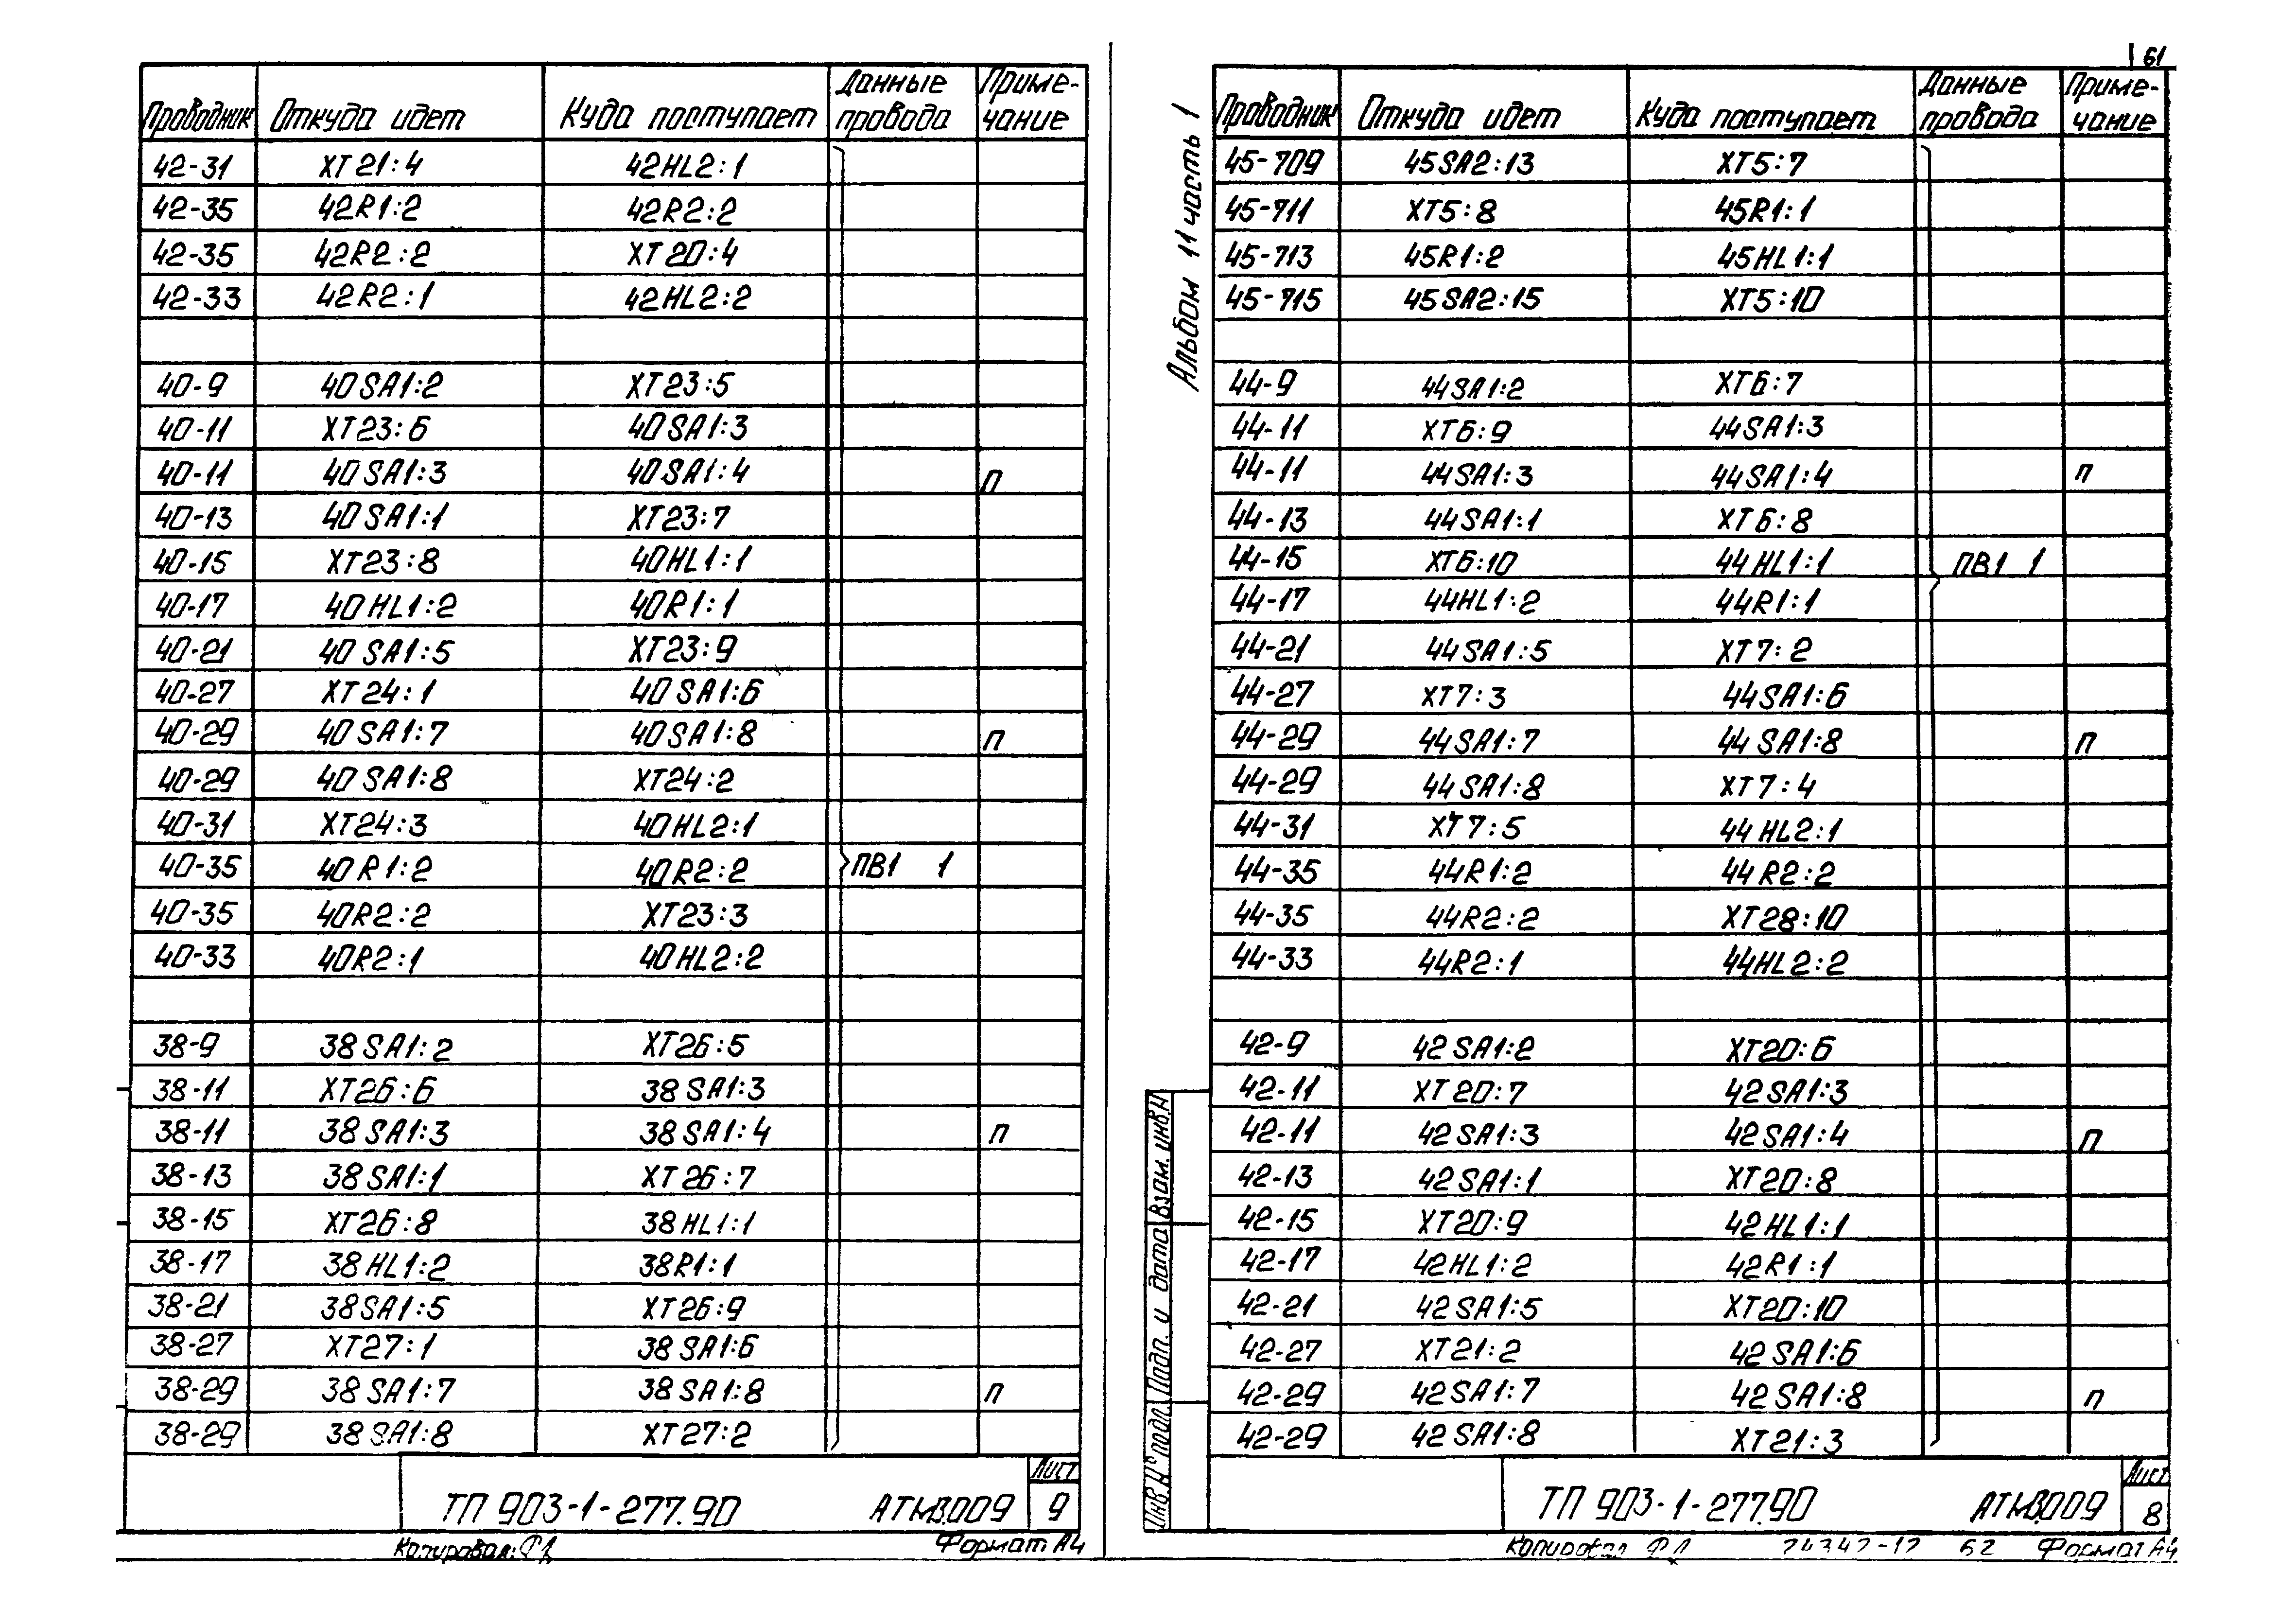 Проводник Откуда идет Куда поступает Данные провода Примечание
42-31 XT21:4 42HL2:1
42-35 42R1:2 42R2:2
42-35 42R2:2 XT20:4
42-33 42R2:1 42HL2:2
40-9 40SA1:2 XT23:5
40-11 XT23:6 40SA1:3
40-11 40SA1:3 40SA1:4 п
40-13 40SA1:1 XT23:7
40-15 XT23:8 40HL1:1
40-17 40HL1:2 40R1:1
40-21 40SA1:5 XT23:9
40-27 XT24:1 40SA1:6
40-29 40SA1:7 40SA1:8 п
40-29 40SA1:8 XT24:2
40-31 XT24:3 40HL2:1
40-35 40R1:2 40R2:2 ПВ1 1
40-35 40R2:2 XT23:3
40-33 40R2:1 40HL2:2
38-9 38SA1:2 XT26:5
38-11 XT26:6 38SA1:3
38-11 38SA1:3 38SA1:4 п
38-13 38SA1:1 XT26:7
38-15 XT26:8 38HL1:1
38-17 38HL1:2 38R1:1
38-21 38SA1:5 XT26:9
38-27 XT27:1 38SA1:6
38-29 38SA1:7 38SA1:8 п
38-29 38SA1:8 XT27:2
ТП 903-1-277.90 АТМ3.009 Лист 9
Копировал: Формат А4
61
Альбом 11 часть 1
Проводник Откуда идет Куда поступает Данные провода Примечание
45-709 45SA2:13 XT5:7
45-711 XT5:8 45R1:1
45-713 45R1:2 45HL1:1
45-715 45SA2:15 XT5:10
44-9 44SA1:2 XT6:7
44-11 XT6:9 44SA1:3
44-11 44SA1:3 44SA1:4 п
44-13 44SA1:1 XT6:8
44-15 XT6:10 44HL1:1 ПВ1 1
44-17 44HL1:2 44R1:1
44-21 44SA1:5 XT7:2
44-27 XT7:3 44SA1:6
44-29 44SA1:7 44SA1:8 п
44-29 44SA1:8 XT7:4
44-31 XT7:5 44HL2:1
44-35 44R1:2 44R2:2
44-35 44R2:2 XT28:10
44-33 44R2:1 44HL2:2
42-9 42SA1:2 XT20:6
42-11 XT20:7 42SA1:3
42-11 42SA1:3 42SA1:4 п
42-13 42SA1:1 XT20:8
42-15 XT20:9 42HL1:1
42-17 42HL1:2 42R1:1
42-21 42SA1:5 XT20:10
42-27 XT21:2 42SA1:6
42-29 42SA1:7 42SA1:8 п
42-29 42SA1:8 XT21:3
Инв.№ подл. Подп. и дата Взам.инв.№
ТП 903-1-277.90 АТМ3.009 Лист 8
Копировал 24347-12 62 Формат А4